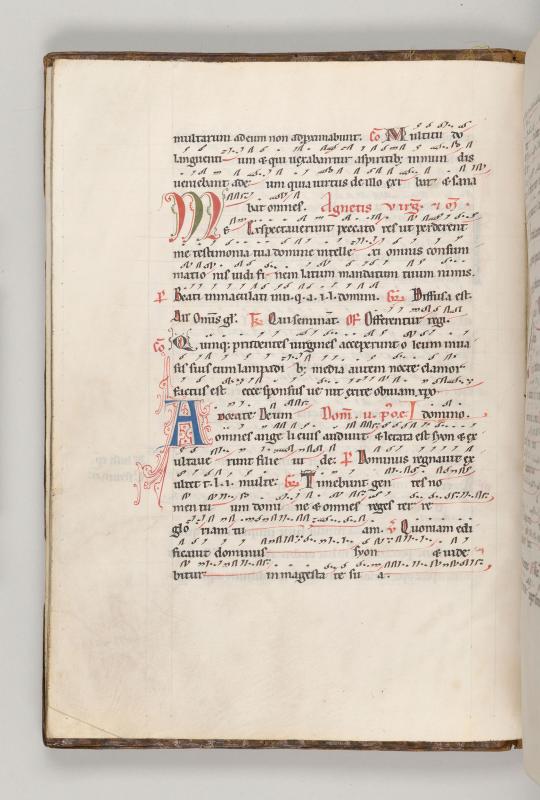 multarum ad eum non adproximabunt. Co Multitu do
languenti um & qui uexabantur a spiritib; inmun dis
ueniebant ade um quia uirtus de illo exi bat & sana
bat omnes. Agnetis uirg̅ & m̅.
Me Exspectauerunt peccato res ut perderent
me testimonia tua domine intelle xi omnis consum
matio nis uidi fi nem latum mandatum tuum nimis.
P Beati inmaculati in u. q. a. i. l. domini. Gr Diffusa est.
All Om̅is gl̅. Tr Qui seminat. OF Offerentur regi.
Co Quinq; prudentes uirgines acceperunt o leum in ua
sis suis cum lampadi b; media autem nocte clamor
factus est ecce sponsus ue nit exite obuiam xp̅o
Adorate Deum Dom̅. u. p̅ o. e. I domino.
omnes ange li eius audiuit & letata est syon & ex
ultaue runt filie iu de: P Dominus regnauit ex
ultet t. l. i. multe: Gr Timebunt gen tes no
men tu um domi ne & omnes reges ter re
glo riam tu am. V Quoniam edi
ficauit dominus syon & uide
bitur in magesta te su a.